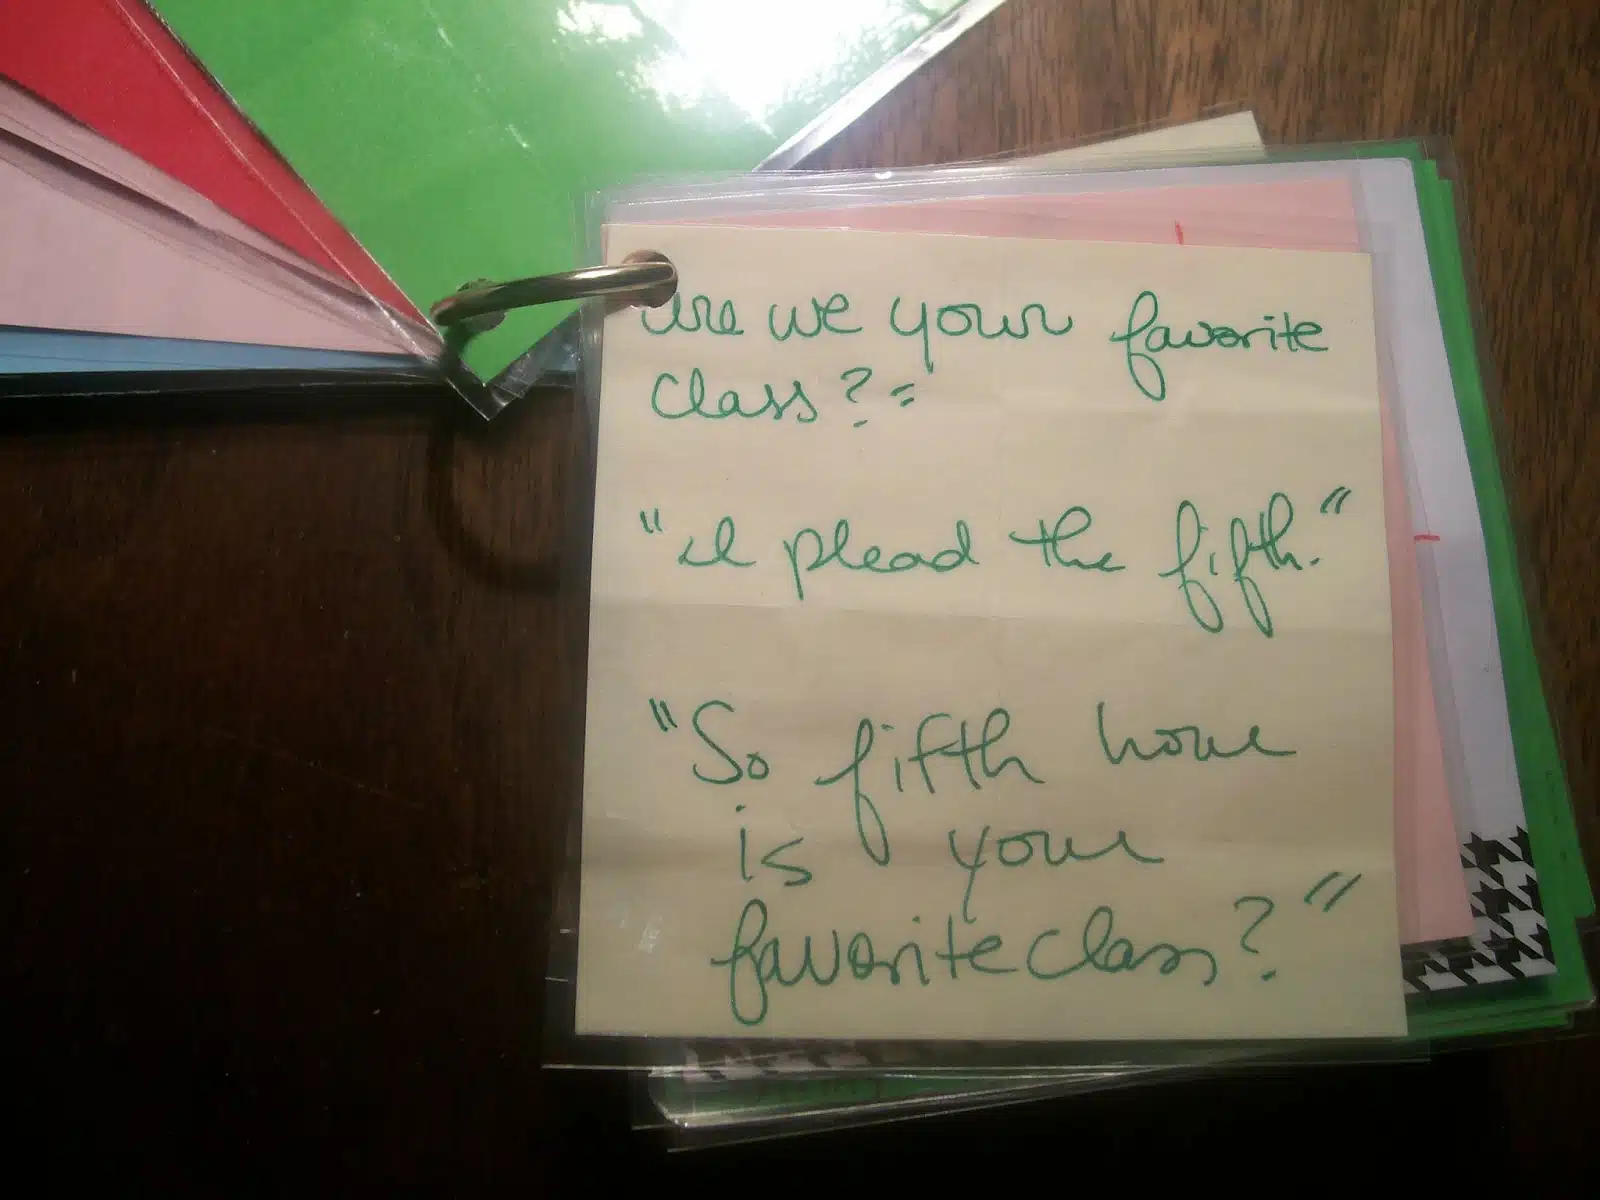 are we your favorite
class? =
"I plead the fifth."
"So fifth hour
is your
favorite class?"